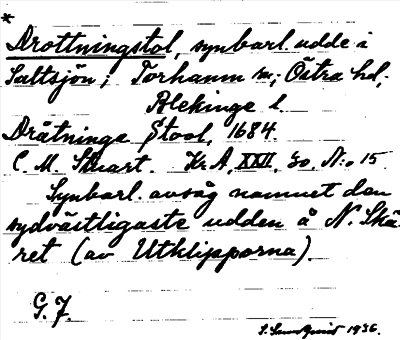 *
Drottningstol, synbarl. udde i
Saltsjön; Torhamn sn; Östra hd,
Blekinge l.
Dråtninge Stool, 1684.
C. M. Stuart. Kr A, XXII, 30, N:o 15
Synbarl. avsåg namnet den
sydvästligaste udden å N. Skä-
ret (av Utklipporna).
G. F.
S. Sundqvist 1936.